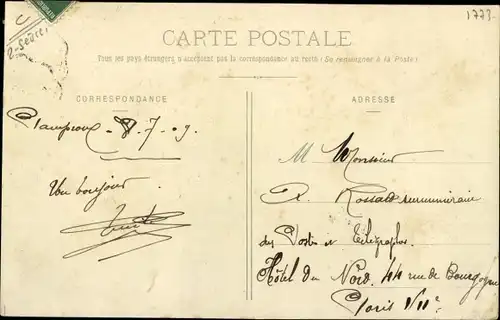 1773.
2-Sèvres
CARTE POSTALE
Tous les pays étrangers n'acceptent pas la correspondance au recto (Se renseigner à la Poste)
CORRESPONDANCE
ADRESSE
8-7-09
Un bonjour
M Monsieur
R. Rossard surnuméraire
des Postes et Télégraphes
Hôtel du Nord. 44 rue de Bourgogne
Paris VIIe